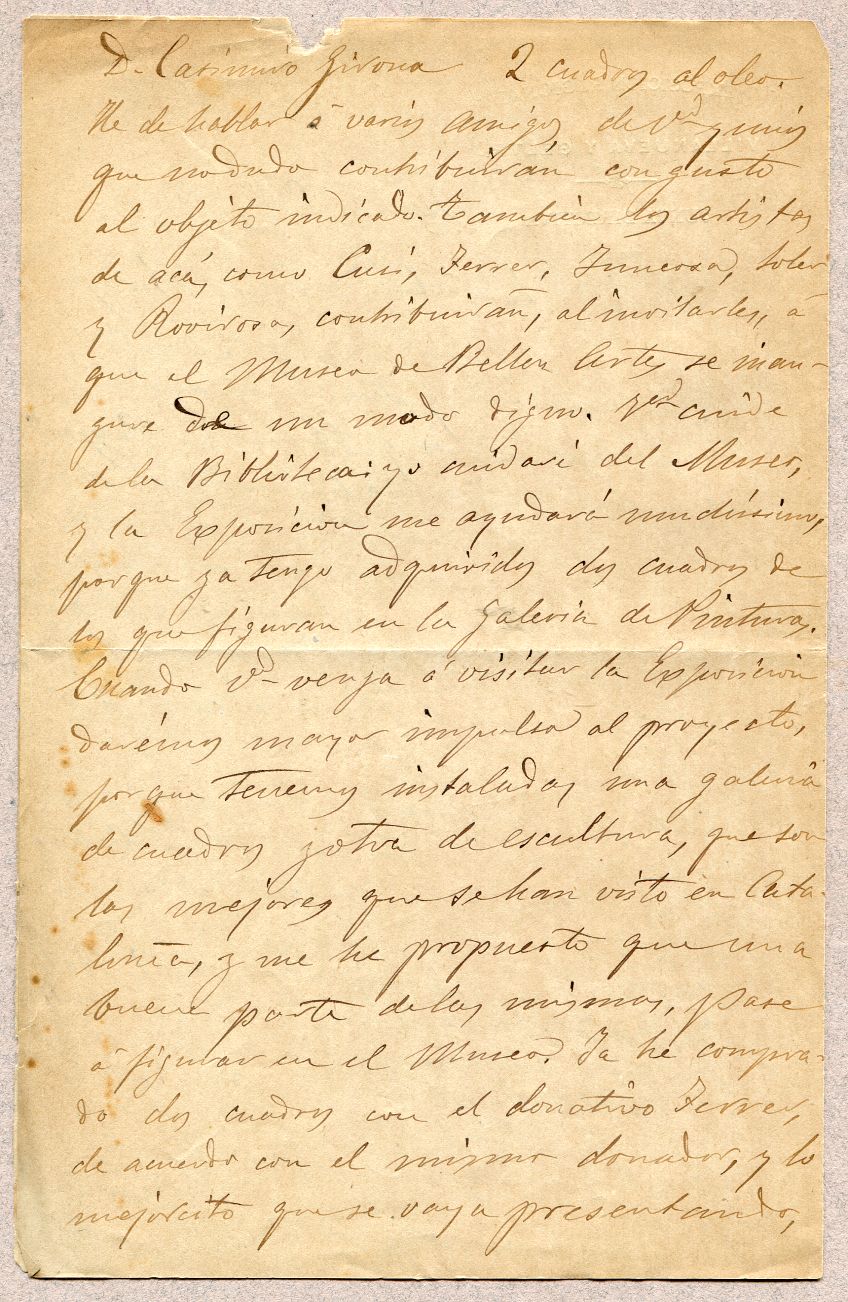 D. Casimiro Girona 2 cuadros al oleo.
He de hablar á varios amigos de Vd y mios
que no dudo contribuirán con gusto
al objeto indicado. Tambien los artistas
de acá, como Cusi, Ferrer, Juncosa, Soler
y Rovirosa, contribuirán, al invitarles, á
que el Museo de Bellas Artes se inau-
gure de un modo digno. Vd cuide
de la Biblioteca; yo cuidaré del Museo,
y la Exposicion me ayudará muchísimo,
porque ya tengo adquiridos dos cuadros de
los que figuran en la Galeria de Pinturas.
Cuando Vd venga á visitar la Exposicion
darémos mayor impulso al proyecto,
porque tenemos instaladas una galeria
de cuadros y otra de escultura, que son
las mejores que se han visto en Cata-
luña, y me he propuesto que una
buena parte de las mismas, pase
á figurar en el Museo. Ya he compra-
do dos cuadros con el donativo Ferrer,
de acuerdo con el mismo donador, y lo
mejorcito que se vaya presentando,